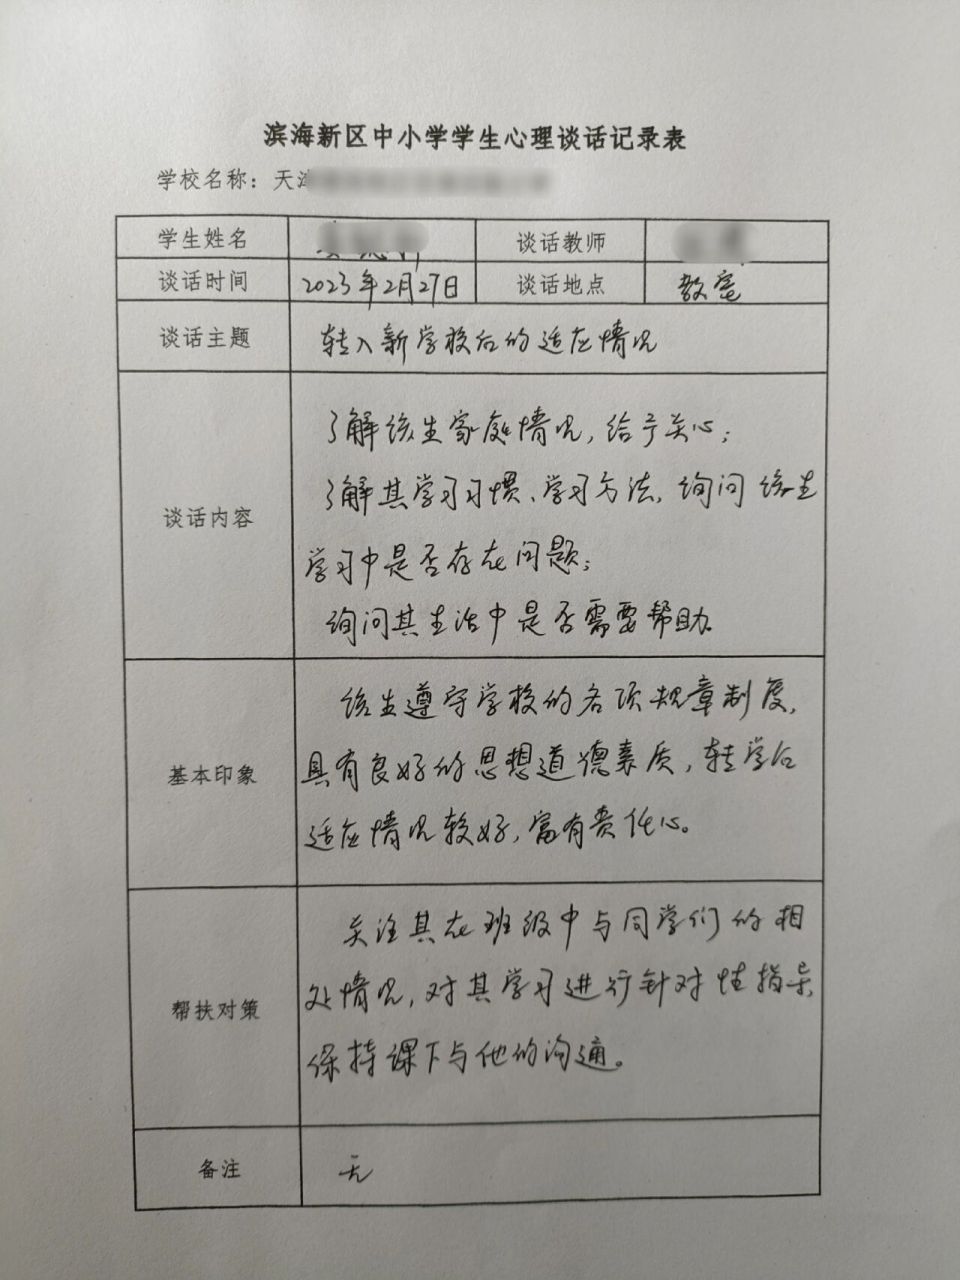 滨海新区中小学学生心理谈话记录表
学校名称：天
学生姓名
谈话教师
谈话时间 2023年2月27日 谈话地点 教室
谈话主题 转入新学校后的适应情况
谈话内容
了解该生家庭情况，给予关心；
了解其学习习惯、学习方法，询问该生
学习中是否存在问题；
询问其生活中是否需要帮助。
基本印象
该生遵守学校的各项规章制度，
具有良好的思想道德素质，转学后
适应情况较好，富有责任心。
帮扶对策
关注其在班级中与同学们的相
处情况，对其学习进行针对性指导，
保持课下与他的沟通。
备注 无